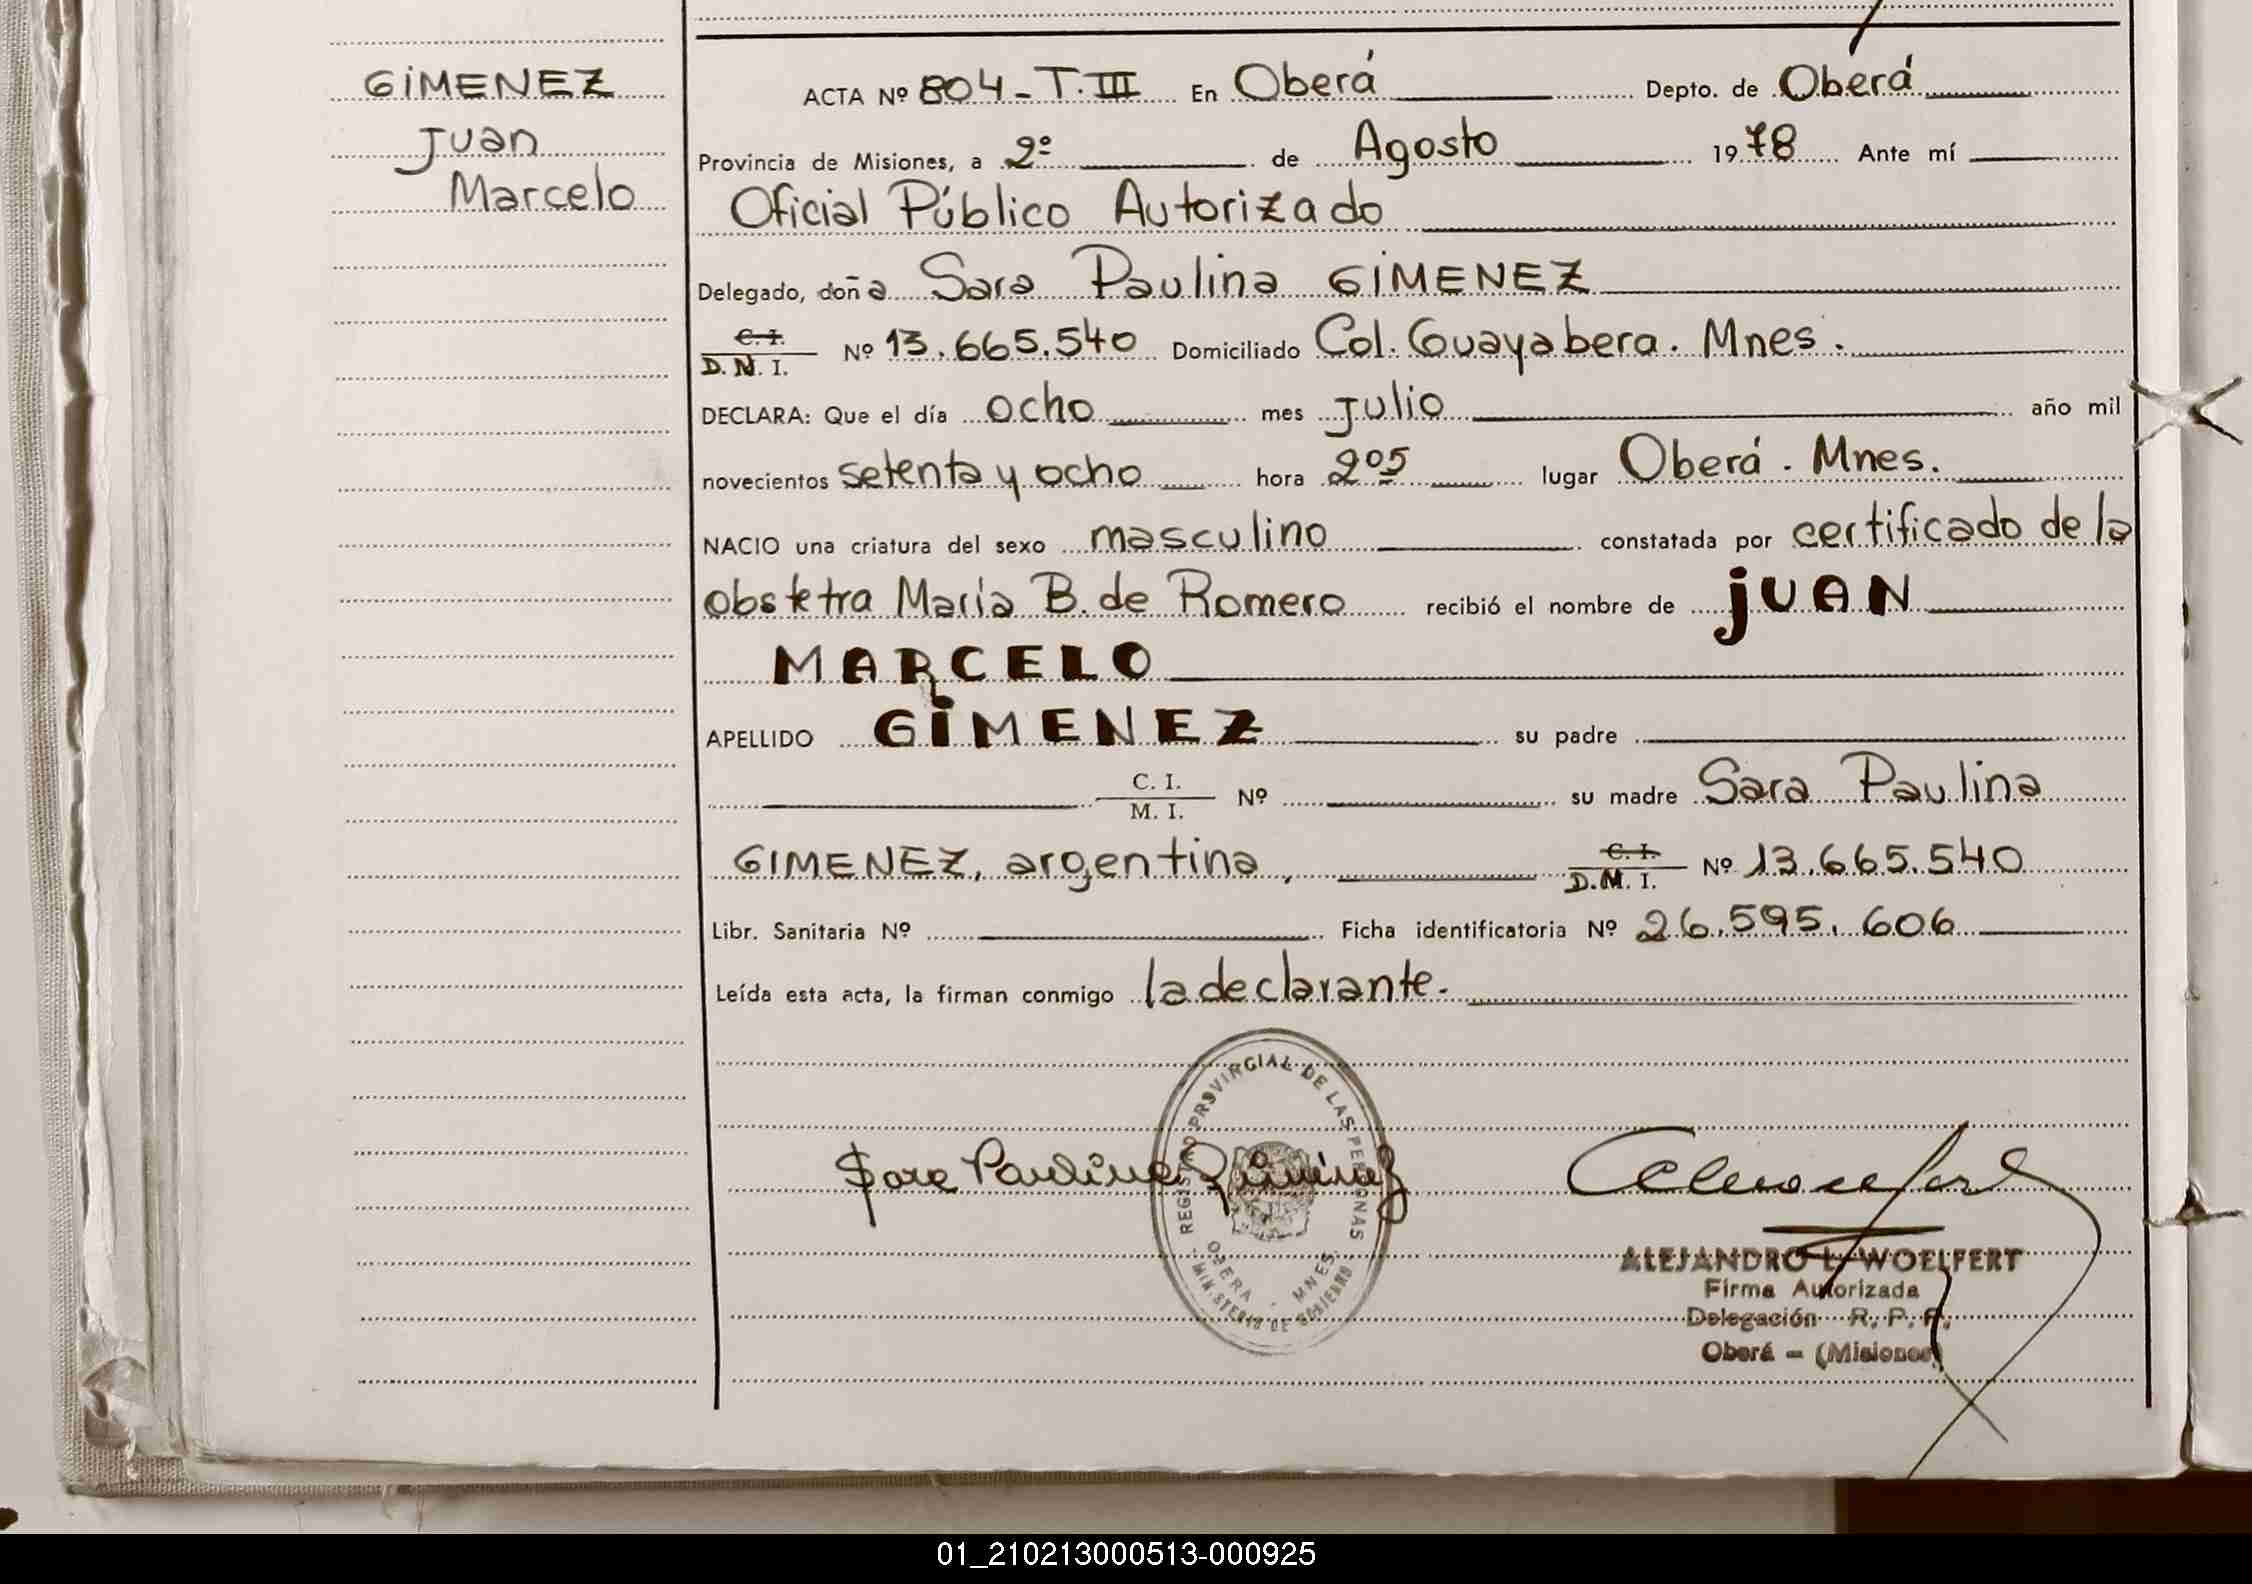 GIMENEZ
Juan
Marcelo
ACTA Nº 804 - T. III En Oberá Depto. de Oberá
Provincia de Misiones, a 2º de Agosto 1978 Ante mí
Oficial Público Autorizado
Delegado, doña Sara Paulina GIMENEZ
C. I.
D. N. I. Nº 13.665.540 Domiciliado Col. Guayabera. Mnes.
DECLARA: Que el día ocho mes Julio año mil
novecientos setenta y ocho hora 2º5 lugar Oberá. Mnes.
NACIO una criatura del sexo masculino constatada por certificado de la
obstetra María B. de Romero recibió el nombre de JUAN
MARCELO
APELLIDO GIMENEZ su padre
C. I.
M. I. Nº su madre Sara Paulina
GIMENEZ, argentina, C. I.
D. M. I. Nº 13.665.540
Libr. Sanitaria Nº Ficha identificatoria Nº 26.595.606
Leída esta acta, la firman conmigo la declarante.
REGISTRO PROVINCIAL DE LAS PERSONAS
OBERA - MNES.
MINISTERIO DE GOBIERNO
Sara Paulina Gimenez
ALEJANDRO L. WOELFERT
Firma Autorizada
Delegación R. P. P.
Oberá - (Misiones)
01_210213000513-000925